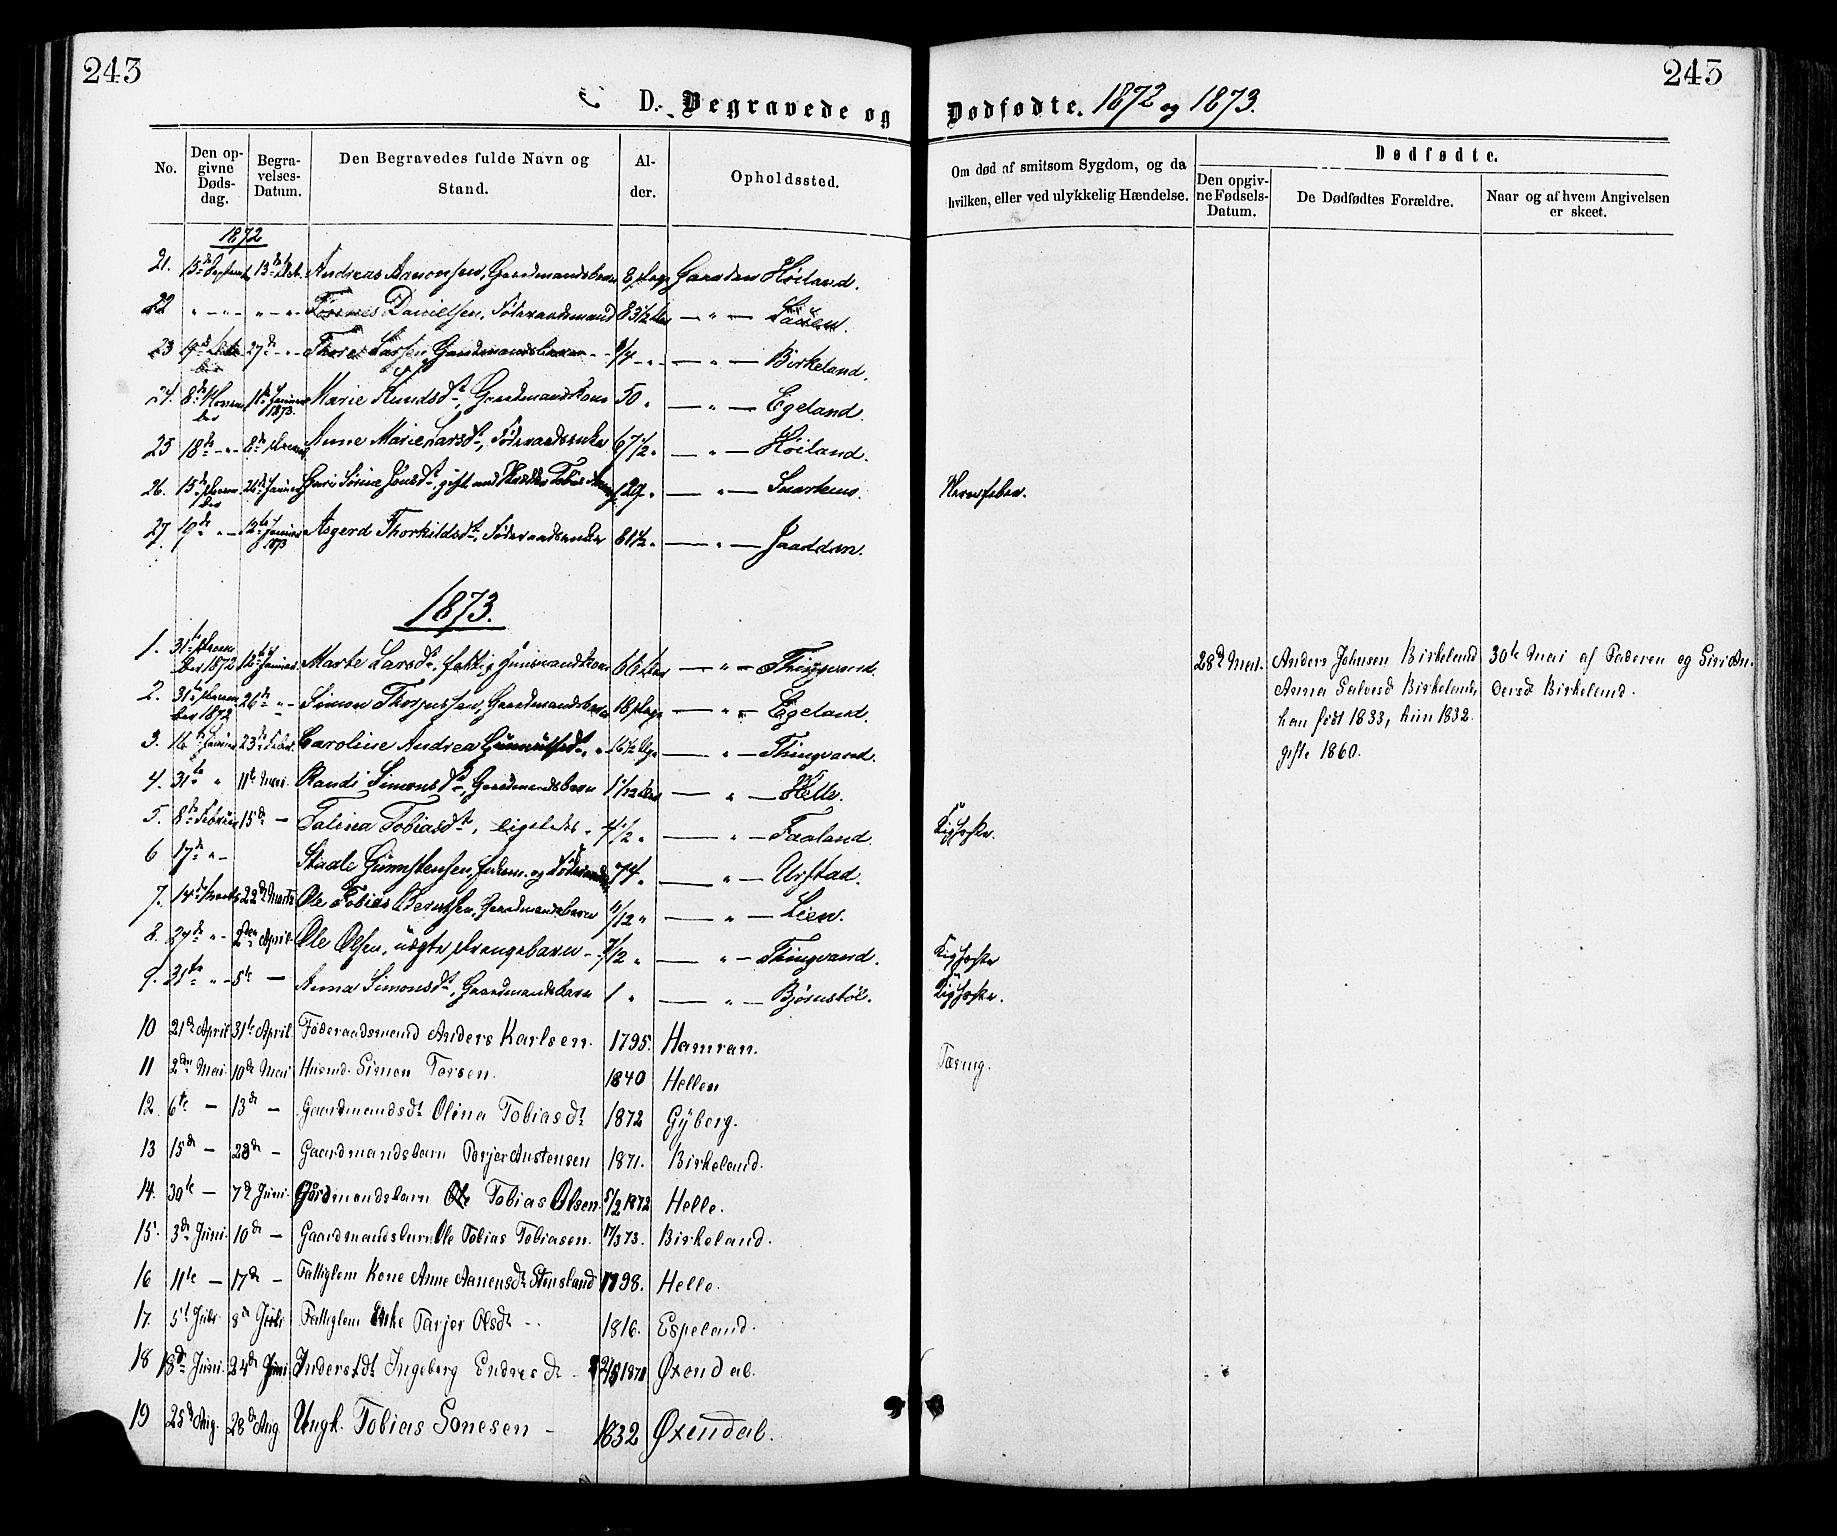 243
243
D. Begravede og Dødfødte. 1872 og 1873.
No.
Den opgivne Dødsdag.
Begravelses-Datum.
Den Begravedes fulde Navn og Stand.
Alder.
Opholdssted.
Om død af smitsom Sygdom, og da hvilken, eller ved ulykkelig Hændelse.
Dødfødte.
Den opgivne Fødsels-Datum.
De Dødfødtes Forældre.
Naar og af hvem Angivelsen er skeet.
1872
21. 13de 13de Andreas Aanonsen, Gaardmandsbarn 8 Dage Høiland.
22 " — " — " — " — Danielsen, Føderaadsmand 83 1/2 Aar — " —
23 19de 27de " — Larsen, Gaardmandsbarn — " — Birkeland.
24. 8de Novem ber 11te Januar 1873. Marie Knudsdt, Gaardmandskone 50 " — " — Egeland.
25 18de — " — 8de Anne Marie Larsdt, Føderaadsenke 67 1/2 " — " — Høiland.
26. 15de Decem ber 26de Januar Sørine Jensdt, gift med Tobias 29 " — " — Snartemo. Nervefeber.
27. 19de " — 12te Januar 1873 Asgerd Thorkildsdt, Føderaadsenke 81 1/2 " — " —
1873.
1. 31te Decem ber 1872 12te Januar. Marte Larsdt, fattig Huusmandskone 66 Aar — " — Tingvand.
28de Mai. Anders Johnsen Birkeland 30te Mai af Faderen og Siri An-
Anna Salvesd Birkeland, dersd Birkeland.
han født 1833, hun 1832.
gifte 1860.
2. 31te Decem ber 1872 26de " — Simon Thorjussen, Gaardmandsbarn 18 Dage — " — Egeland.
3. 16de Januar 23de Febr. Caroline Andrea 16 1/2 — " — Thingvand.
4. 31te " 11te Mars. Randi Simonsdt, Gaardmandsbarn 1 1/12 Aar — " — Helle.
5. 8de Februar 15de — Talina Tobiasdt, ligeledes " 4 1/2 " — " — Faaland. Kighoste.
6 17de " — Staale Gunnstensen, og 74 " — " — Urstad.
7. 14de Marts 22de Marts Ole Tobias Berntsen, Gaardmandsbarn 11/12 " — " — Lien.
8. 27de " — 2den April. Ole Olsen, uægte Drengebarn — 7/12 " — " — Tingvand. Kighoste
9. 31te " — 5te — Anna Simonsdt, Gaardmandsbarn 1 " — " — Bjørnstøl. Kighoste.
10 21de April 31te April Føderaadsmand Anders Karlsen. 1795. Hamran.
11 2den Mai. 10de Mai Husmd. Simon Torsen. 1840 Hellen Tæring.
12. 6te — 13de — Gaardmandsdt Olina Tobiasdt 1872 Gyberg.
13 15de — 28de — Gaardmandsbarn Torjer Austensen 1871. Birkeland.
14. 30te — 7de Juni. Gårdmandsbarn Ole Tobias Olsen. 5/2 1872 Helle.
15. 3de Juni. 10de — Gaardmandsbarn Ole Tobias Tobiasen. 17/3 73. Birkeland.
16 11te — 17de — Fattiglem Kone Anne Aanensdt Stensland 1798. Helle.
17. 5t Juli 8de Juli Fattiglem Enke Tarjer Olsdt — 1816. Espeland.
18 18de Juni. 24de Juni Inderstdt Ingeborg Endresdt — Øxendal.
19 25de Aug. 28de Aug Ungk. Tobias Sonesen — 1832 Øxendal.